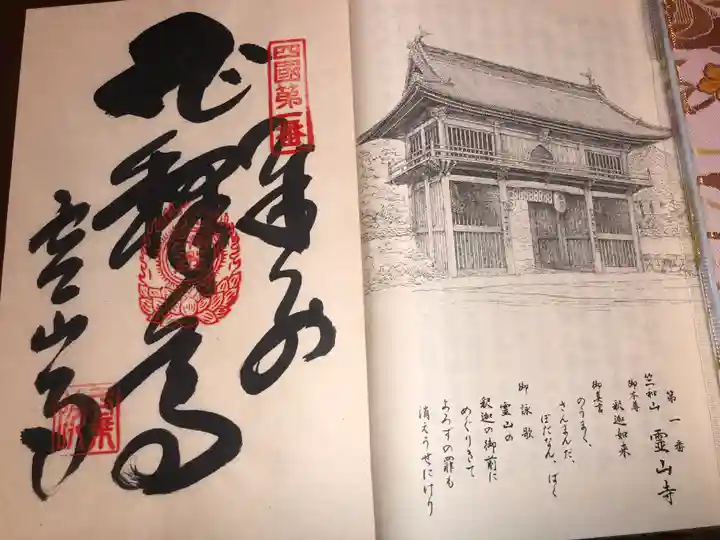 第一番
竺和山 霊山寺
御本尊
釈迦如来
御真言
のうまく、
さんまんだ、
ぼだなん、ばく
御詠歌
霊山の
釈迦の御前に
めぐりきて
よろずの罪も
消えうせにけり
四國第一番
奉納
釋迦
霊山寺